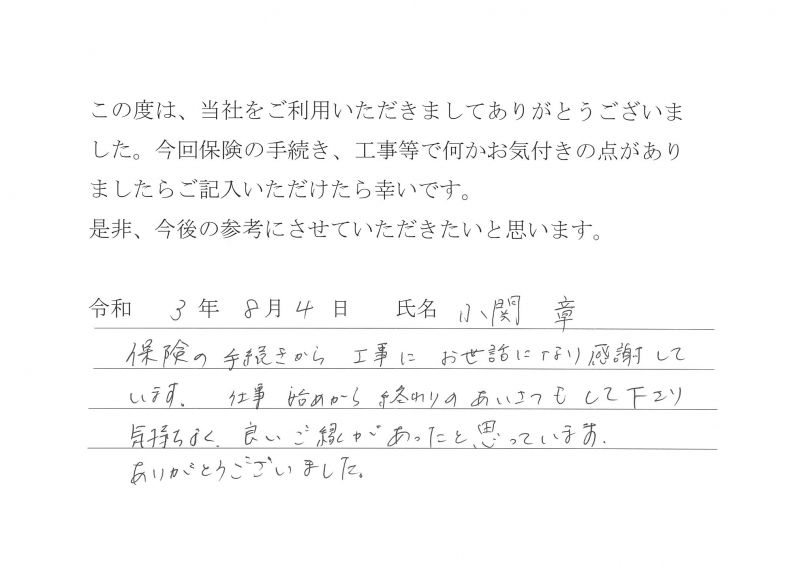 この度は、当社をご利用いただきましてありがとうございま
した。今回保険の手続き、工事等で何かお気付きの点があり
ましたらご記入いただけたら幸いです。
是非、今後の参考にさせていただきたいと思います。
令和 3年 8月4日 氏名 小関 章
保険の手続きから 工事に お世話になり感謝して
います。 仕事 始めから 終わりの あいさつも して下さり
気持ちよく、良い ご縁が あったと思っています。
ありがとうございました。